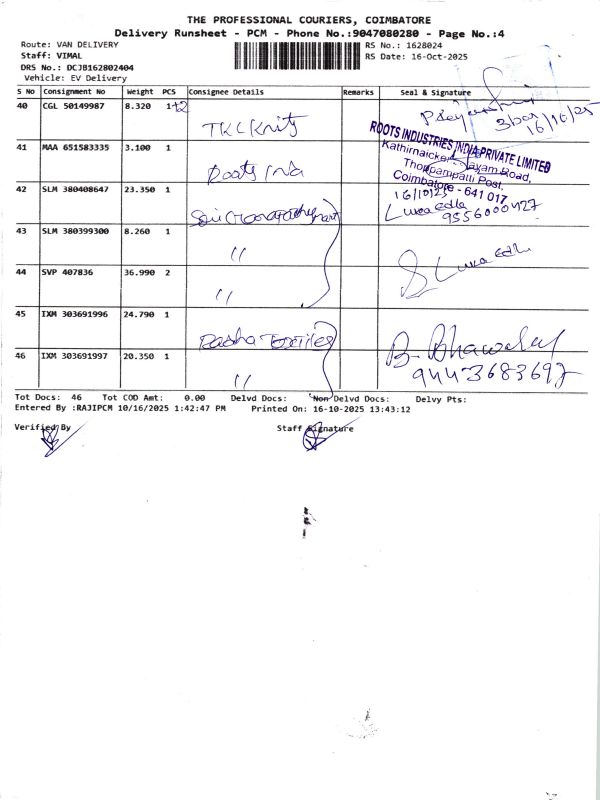 THE PROFESSIONAL COURIERS, COIMBATORE
Delivery Runsheet - PCM - Phone No.:9047080280 - Page No.:4
Route: VAN DELIVERY RS No.: 1628024
Staff: VIMAL RS Date: 16-Oct-2025
DRS No.: DCJB162802404
Vehicle: EV Delivery
S No Consignment No Weight PCS Consignee Details Remarks Seal & Signature
40 CGL 50149987 8.320 1+2 TKC Knits 3box 16/10/25
41 MAA 651583335 3.100 1 Roots Ind
ROOTS INDUSTRIES INDIA PRIVATE LIMITED
Kathirnaickenpalayam Road,
Thoppampatti Post,
Coimbatore - 641 017
42 SLM 380408647 23.350 1 16/10/25
9556000427
43 SLM 380399300 8.260 1 "
44 SVP 407836 36.990 2 "
45 IXM 303691996 24.790 1
46 IXM 303691997 20.350 1 " 9443683697
Tot Docs: 46 Tot COD Amt: 0.00 Delvd Docs: Non Delvd Docs: Delvy Pts:
Entered By :RAJIPCM 10/16/2025 1:42:47 PM Printed On: 16-10-2025 13:43:12
Verified By Staff Signature